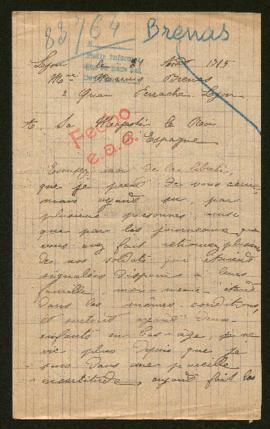 88764
Brenas
Lyon le 21 1915
Mme Brenas
2 Quai Perrache Lyon
Fecho
e.a.e.
A Sa Majesté le Roi
d'Espagne
Excusez moi de la liberté
que je prend de vous
mais ayant su, par
plusieurs personnes,
que par les journeaux que
vous avez fait retrouver plusieurs
de nos soldats qui étaient
signalés disparus a leurs
famille moi-meme étant
dans les mêmes conditions,
et surtout ayant deux
enfants en bas-âge, je ne
vie plus depuis que je
suis dans une pareille
incertitude, ayant fait les